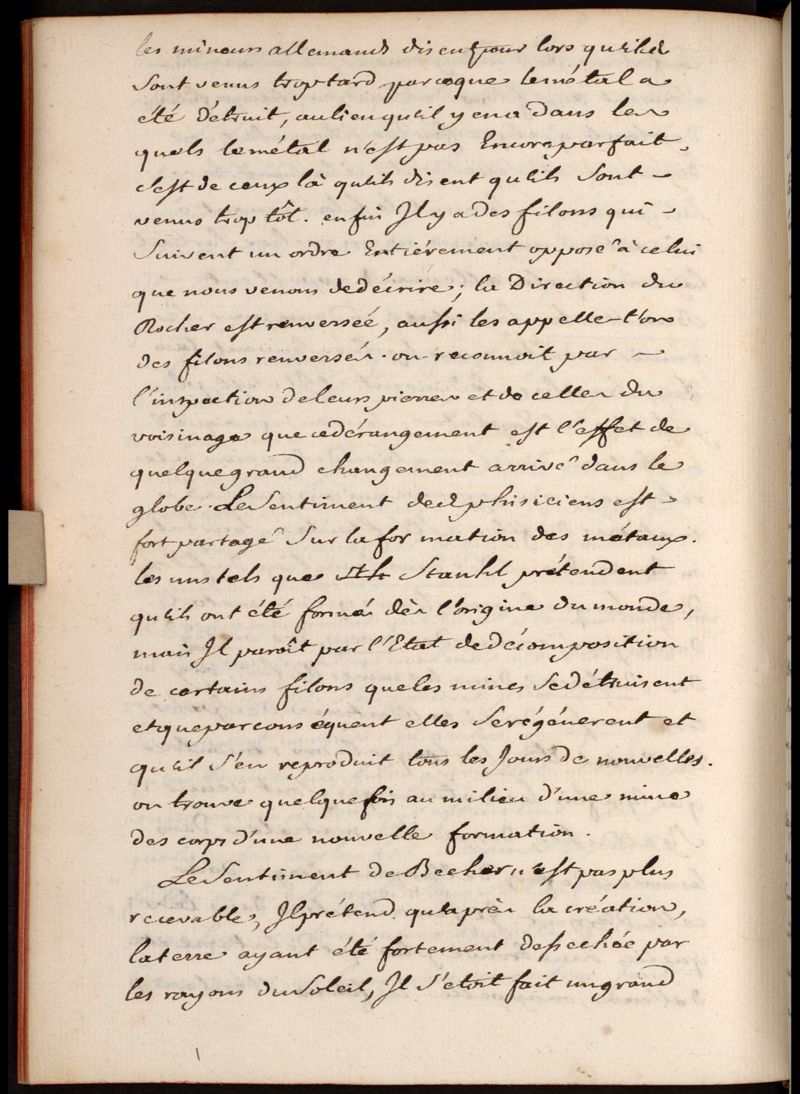 les mineurs allemands disent pour lors qu'ils
sont venus trop tard parceque le métal a
été détruit, au lieu qu'il y en a dans les
quels le métal n'est pas Encore parfait,
c'est de ceux là qu'ils disent qu'ils sont
venus trop tôt. enfin Il y a des filons qui
suivent un ordre Entiérement opposé à celui
que nous venons de décrire; la Direction du
Rocher est renversée, aussi les appelle-t'on
des filons renversés. on reconnoit par
l'inspection de leurs pierres et de celles du
voisinage que ce dérangement est l'effet de
quelque grand changement arrivé dans le
globe. Le Sentiment des phisiciens est
fort partagé sur la formation des métaux.
les uns tels que Sth Stanhl prétendent
qu'ils ont été formés dès l'origine du monde,
mais Il paroît par l'Etat de décomposition
de certains filons que les mines se détruisent
et que par conséquent elles se régénerent et
qu'il s'en reproduit tous les Jours de nouvelles.
on trouve quelque fois au milieu d'une mine
des corps d'une nouvelle formation.
Le Sentiment de Becher n'est pas plus
recevables, Il prétend qu'après la création,
la terre ayant été fortement dessechée par
les rayons du Soleil, Il s'étoit fait un grand